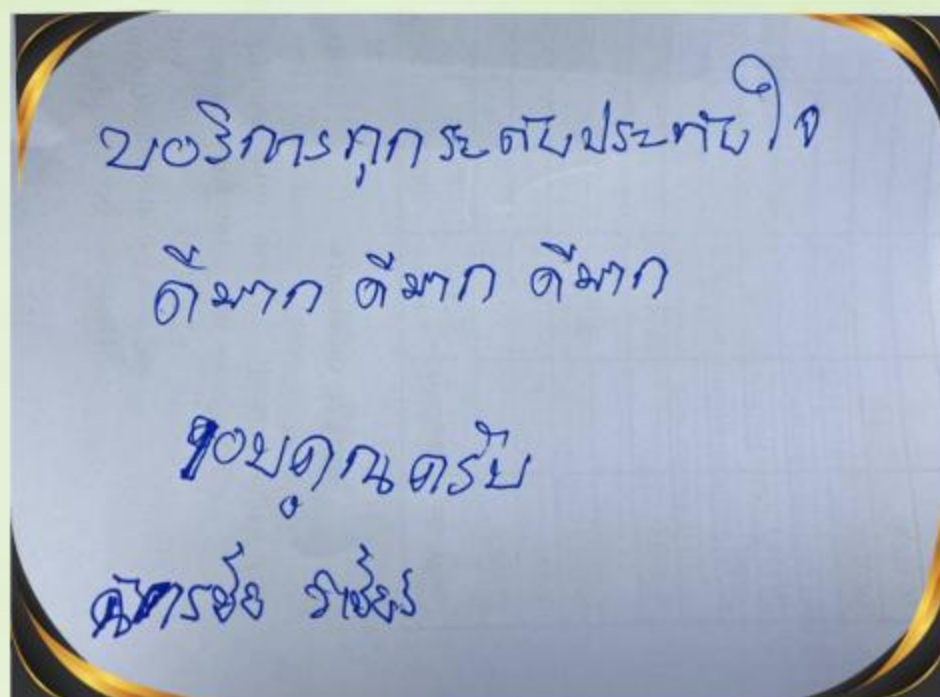 บอริการทุกระดับประทับใจ
ดีมาก ดีมาก ดีมาก
ขอบคุณครับ